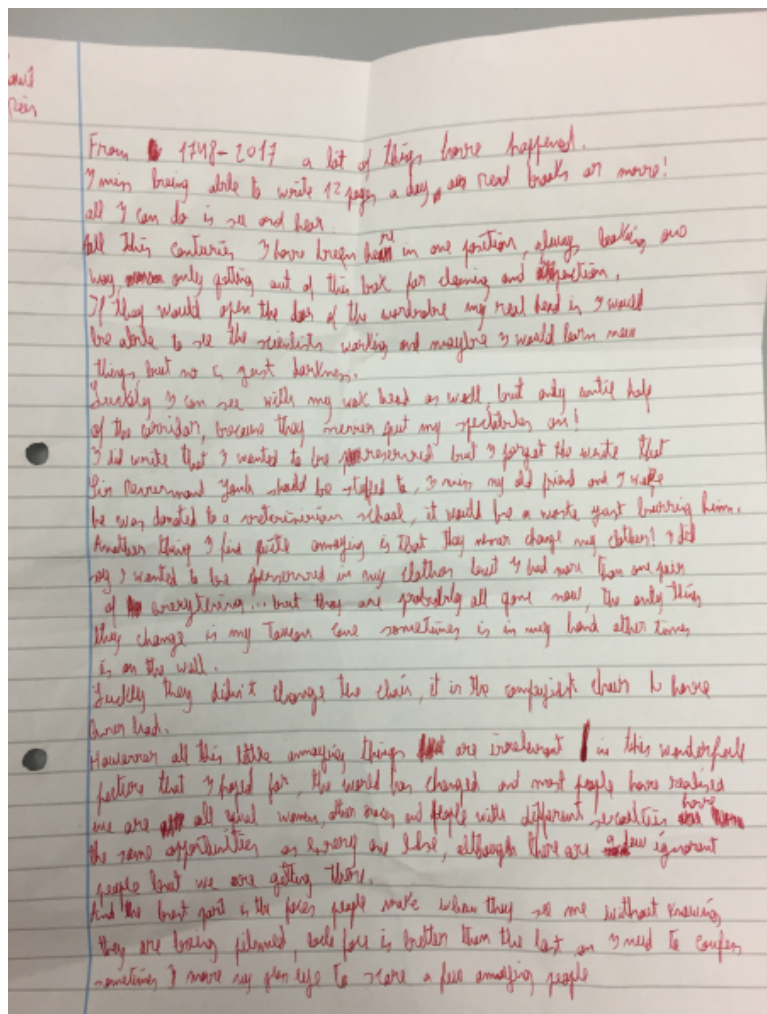 From 1748-2017 a lot of things have happened.
I miss being able to write 12 pages a day, read books or move!
all I can do is see and hear.
All this centuries I have been in one position, always looking one
way, only getting out of this box for cleaning and
If they would open the door of the wardrobe my real head is I would
be able to see the scientists working and maybe I would learn new
things but no is just darkness.
Luckly I can see with my wax head as well, but only until half
of the corridor, because they never put my spectables on!
I did write that I wanted to be preserved but I forget the write that
Sir should be to, I miss my old friend and I
he was donated to a school, it would be a waste just burring him.
Another thing I find quite annoying is that they never change my clothes! I did
say I wanted to be perserved in my clothes but I had more than one pair
of everything... but they are probably all gone now, the only thing
they change is my cane sometimes is in my hand other times
is on the wall.
Luckly they didn't change the chair, it is the chair I have
had.
However all this little annoying things are irrelevant in this wonderfull
that I hoped for, the world has changed and most people have realised
we are all equal women, other races and people with different have
the same opportunities as every one else, although there are a few ignorant
people but we are getting there.
And the best part is the faces people make when they see me without knowing
they are being filmed, each face is better than the last, I need to
sometimes I move my eye to scare a few annoying people